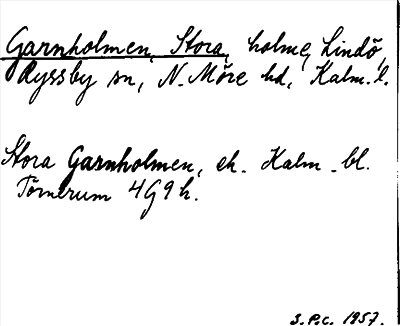 Garnholmen, Stora, holme, Lindö,
Ryssby sn, N. Möre hd, Kalm. l.
Stora Garnholmen, ek. Kalm. bl.
Törnerum 4G9h.
S.P.C. 1957.